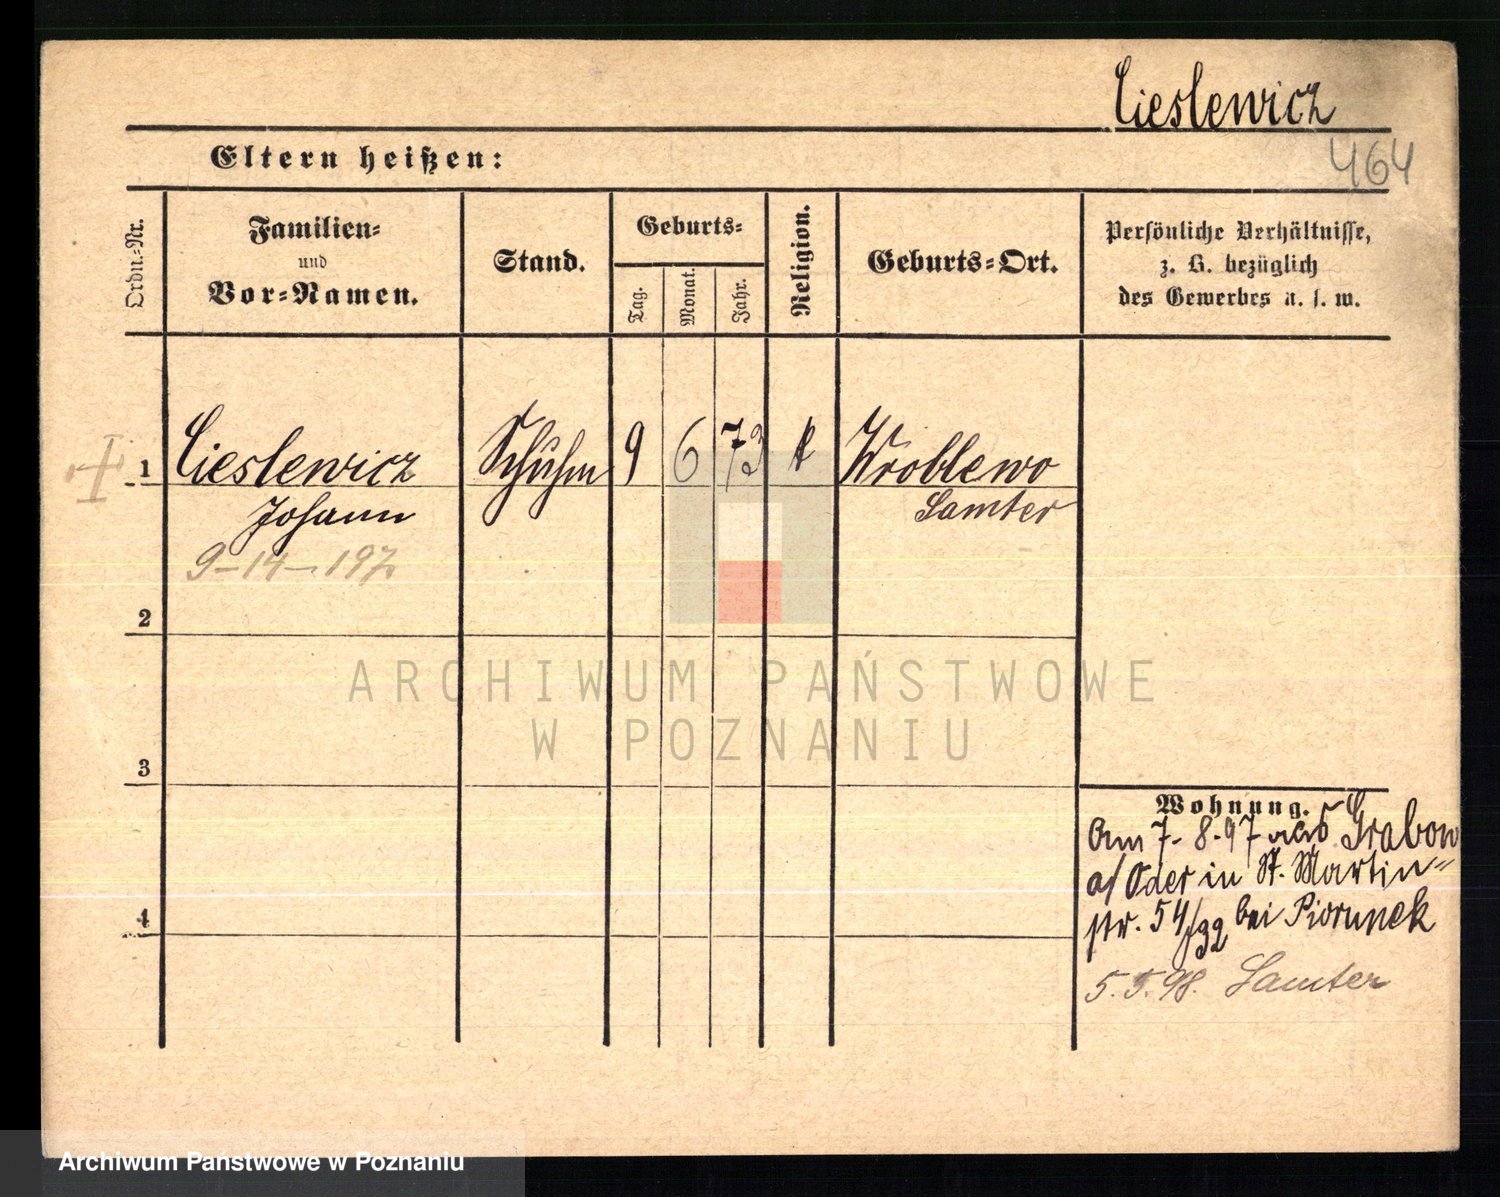 Cieslewicz
464
Eltern heißen:
Ordn.-Nr.
Familien-
und
Vor-Namen.
Stand.
Geburts-
Tag.
Monat.
Jahr.
Religion.
Geburts-Ort.
Persönliche Verhältnisse,
z. B. bezüglich
des Gewerbes u. s. w.
1 Cieslewicz Schuhm 9 6 73 k Wroblewo
Johann Samter
9-14-197
2
3
4
Wohnung.
Am 7-8-97 aus Grabow
a/Oder in St. Martin-
str. 54/ bei Piorunek
5.5.98. Samter
ARCHIWUM PAŃSTWOWE
W POZNANIU
Archiwum Państwowe w Poznaniu